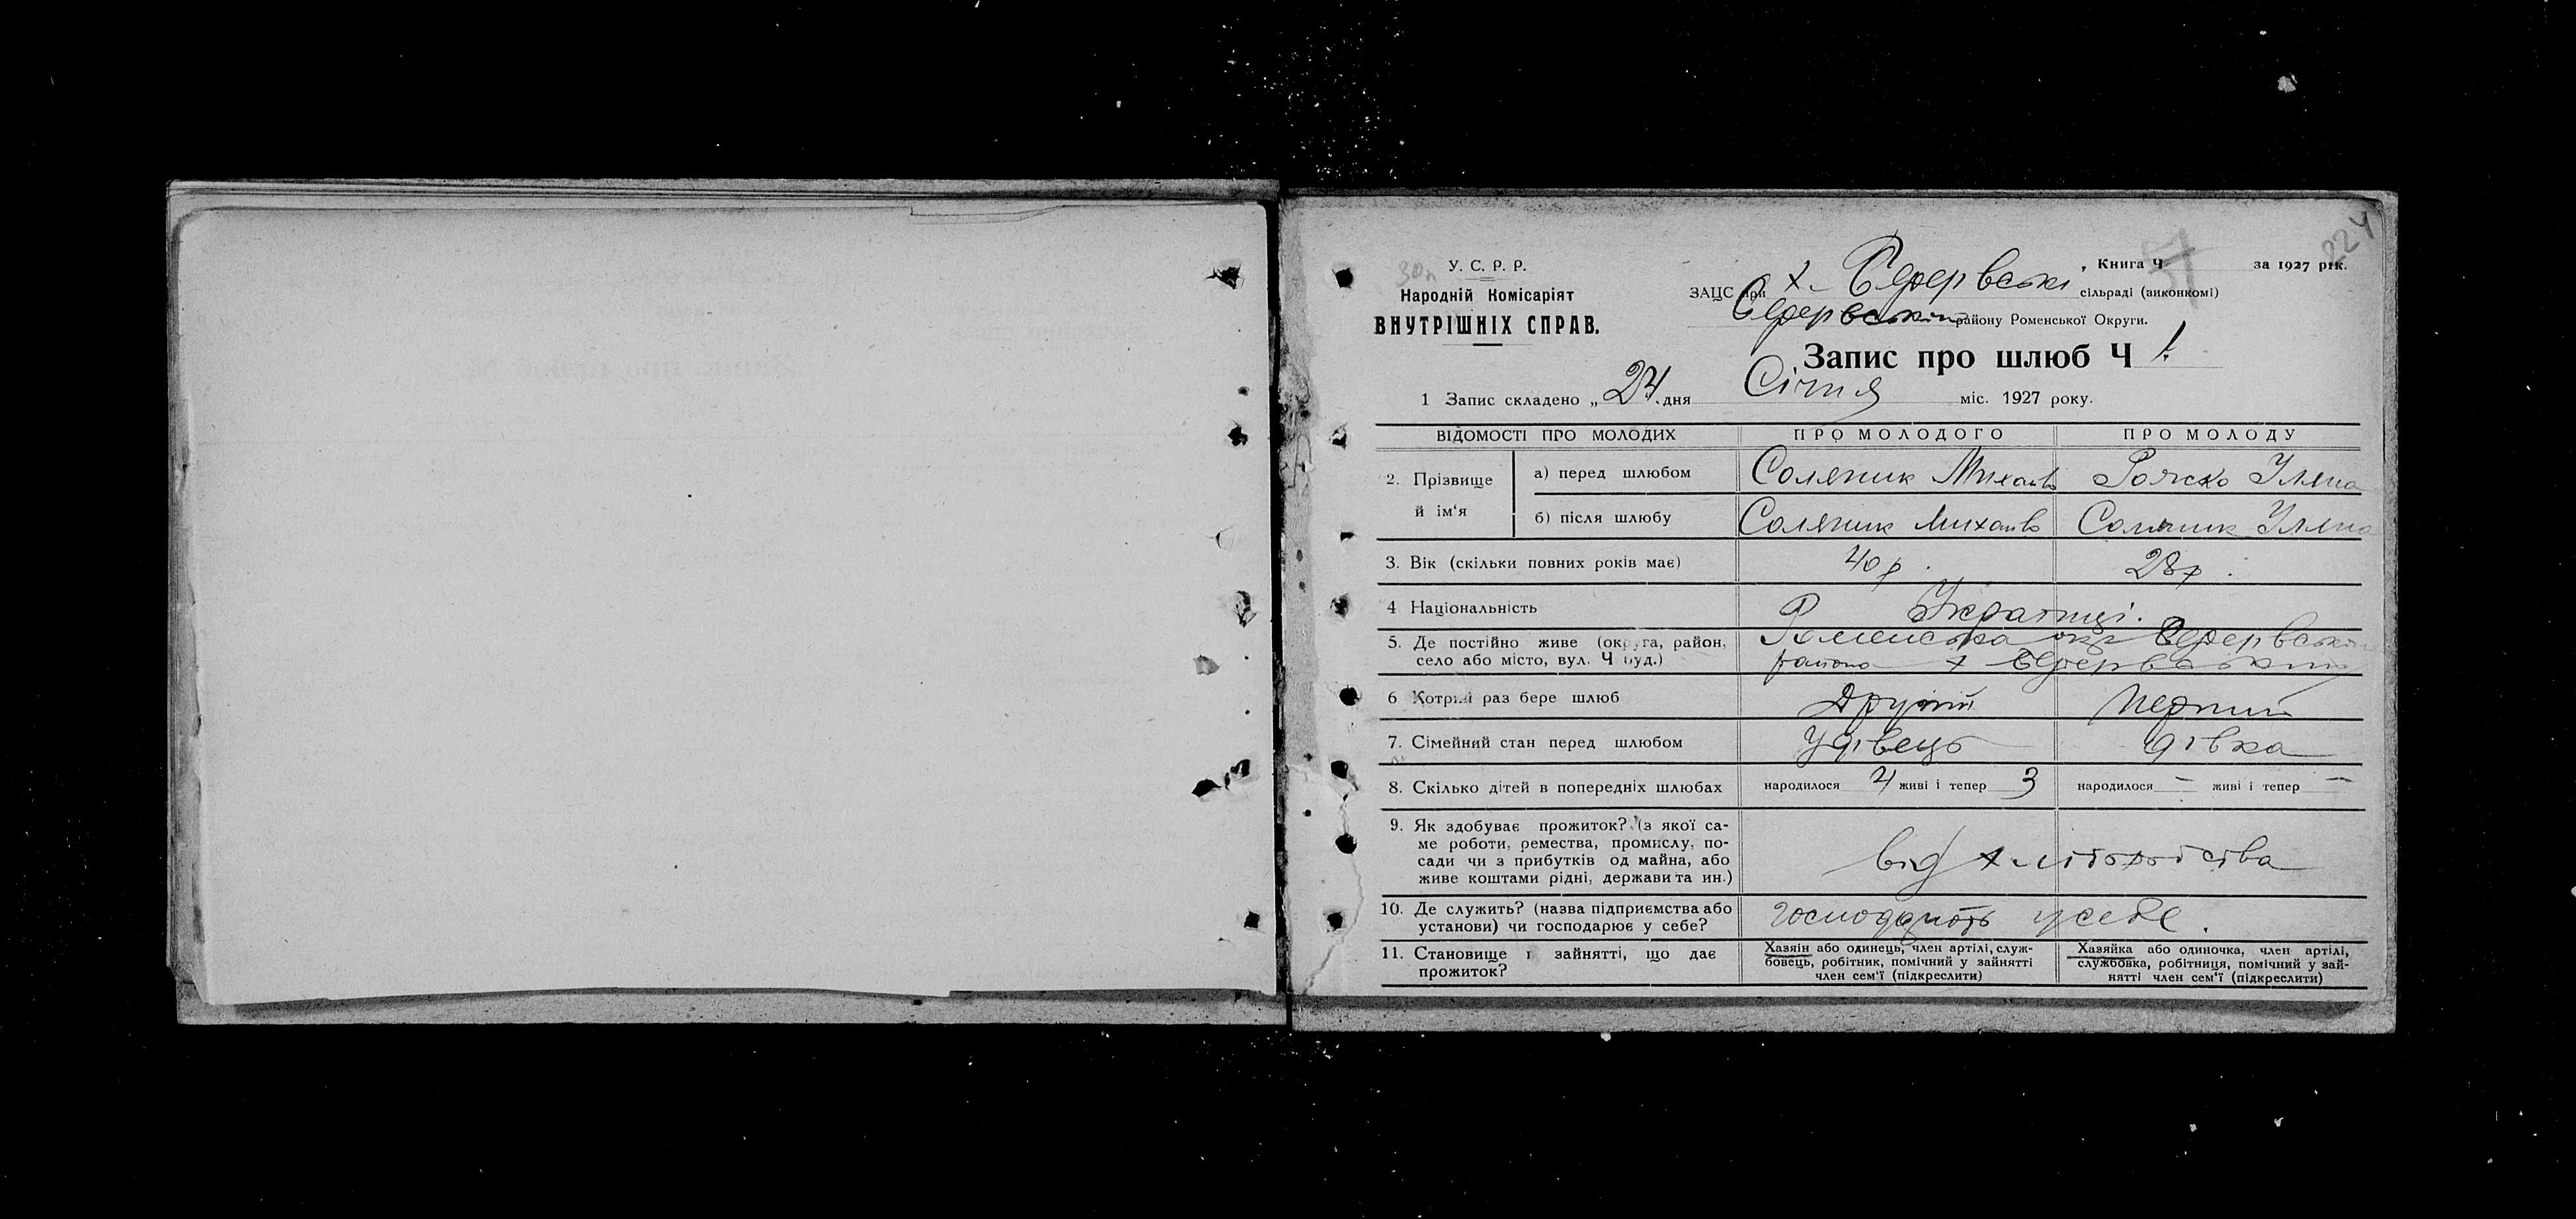 224
30п
57
У. С. Р. Р.
Народній Комісаріят
ВНУТРІШНІХ СПРАВ.
, Книга Ч. за 1927 рік.
ЗАЦС при х. сільраді (виконкомі)
району Роменської Округи.
Запис про шлюб Ч 1.
1 Запис складено „ 24. дня Січня міс. 1927 року.
ВІДОМОСТІ ПРО МОЛОДИХ ПРО МОЛОДОГО ПРО МОЛОДУ
2. Прізвище й ім‘я
а) перед шлюбом Соляник Михаило Уляна
б) після шлюбу Соляник Михаило Соляник Уляна
3. Вік (скільки повних років має) 40 р. 28 р.
4 Національність Українці.
5. Де постійно живе (округа, район, Роменська окр
село або місто, вул. Ч буд.) району х
6 Котрий раз бере шлюб Другий Перший
7. Сімейний стан перед шлюбом Удівець дівка
8. Скілько дітей в попередніх шлюбах народилося 4 живі і тепер 3 народилося — живі і тепер —
9. Як здобуває прожиток? (з якої са-
ме роботи, ремества, промислу, по-
сади чи з прибутків од майна, або
живе коштами рідні, держави та ин.)
від хліборобства
10. Де служить? (назва підприємства або
установи) чи господарює у себе?
господарюють у себе.
11. Становище в зайнятті, що дає
прожиток?
Хазяін або одинець, член артілі, служ-
бовець, робітник, помічний у зайнятті
член сем‘ї (підкреслити)
Хазяйка або одиночка, член артілі,
службовка, робітниця, помічний у зай-
нятті член сем‘ї (підкреслити)